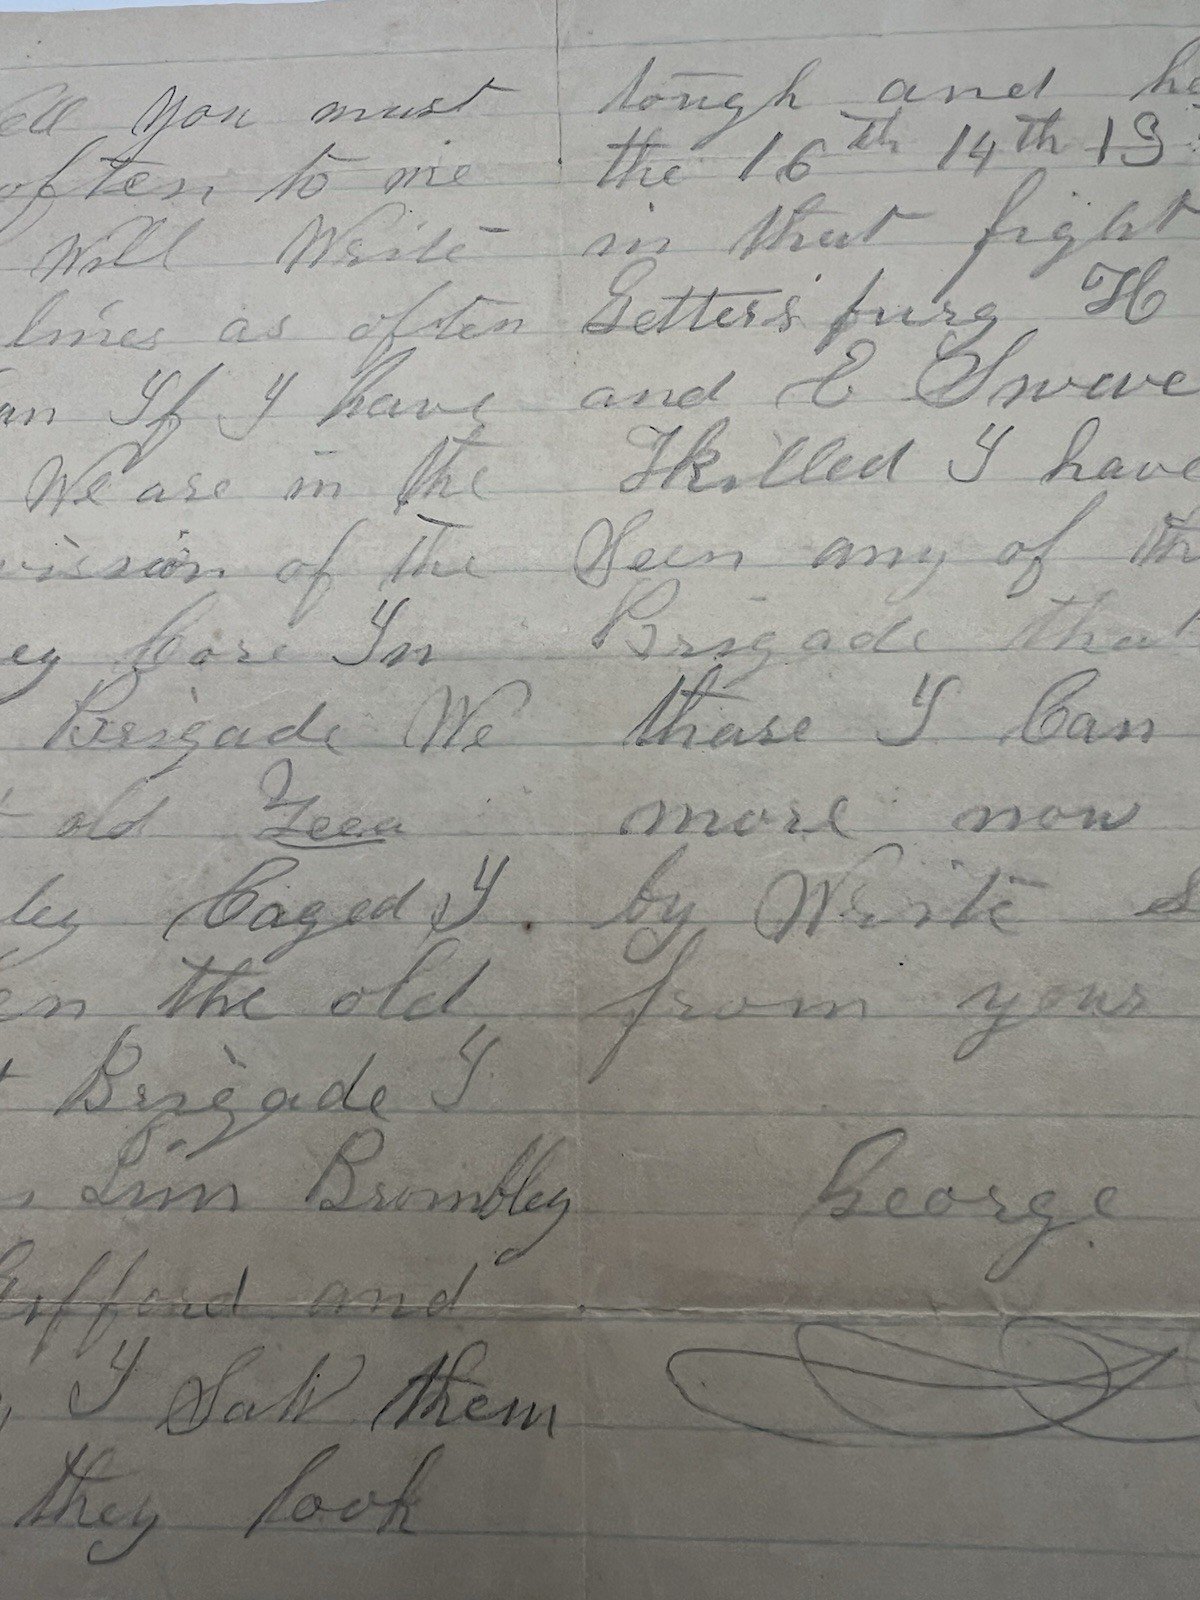 ell you must
often to me
Will Write
lines as often
an If I have
We are in the
vission of the
ey Core In
Brigade We
old Leea
ley Caged I
en the old
Brigade I
Linn Brombley
Gifford and
I Saw them
they look
tough and he
the 16th 14th 13
in that fight
Getters burg H
and E Sweve
Kkilled I have
Seen any of th
Brigade that
those I Can
more now
by Write S
from your
George